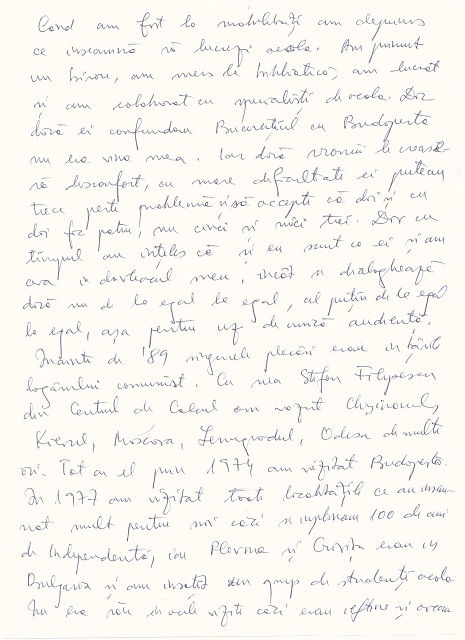 Când am fost la mobilități am depus
ce înseamnă să lucrezi acolo. Am primit
un birou, am mers la bibliotecă, am lucrat
și am colaborat cu specialiști de acolo. Dar
dacă ei confundau Bucureștiul cu Budapesta
nu era vina mea. Iar dacă vroiau le creasă
să disconfort, cu mare dificultate ei puteau
trece peste problemă și să accepte că doi și cu
doi fac patru, nu cinci și nici trei. Dar cu
timpul au înțeles că și eu sunt ca ei și am
ceva în dovleacul meu, încât se dialoghează
dacă nu de la egal la egal, cel puțin de la egal
la egal, așa pentru uz de audiență.
Înainte de '89 singurele plecări erau în țările
lagărului comunist. Cu nea Ștefan Filipescu
din Centrul de Calcul am văzut Chișinăul,
Kievul, Moscova, Leningradul, Odesa de multe
ori. Tot cu el prin 1974 am vizitat Budapesta.
În 1977 am vizitat toate localitățile ce au însem-
nat mult pentru noi căci se împlineau 100 de ani
de Independență, iar Plevna și Grivița erau în
Bulgaria și am însoțit un grup de studenți acolo
Nu era rău în acele vizite căci erau ieftine și aveam